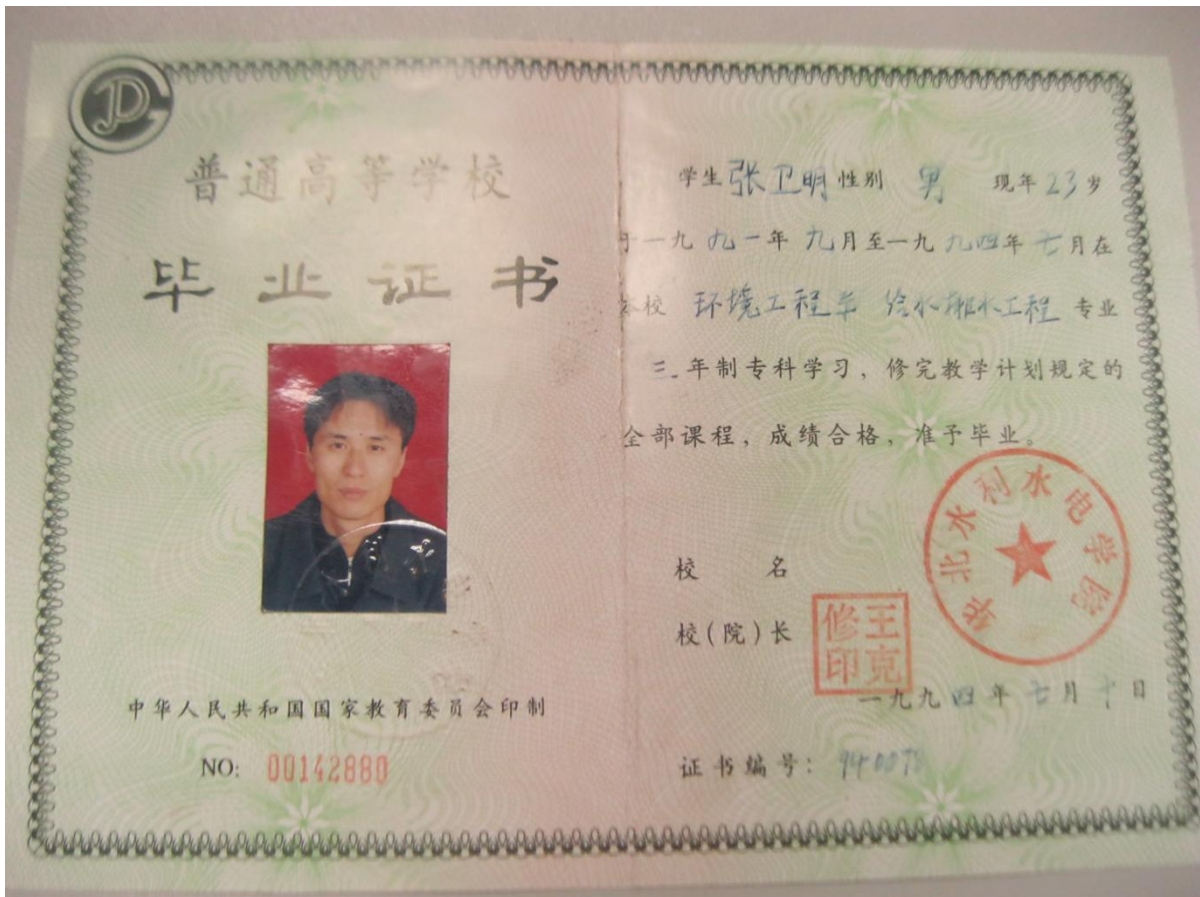 普通高等学校
毕业证书
中华人民共和国国家教育委员会印制
NO: 00142880
学生 张卫明 性别 男 现年 23 岁
于一九九一年九月至一九九四年七月在
本校 环境工程系 给水排水工程 专业
三年制专科学习，修完教学计划规定的
全部课程，成绩合格，准予毕业。
华北水利水电学院
校 名
校（院）长
王克修印
一九九四年七月十日
证书编号：940078